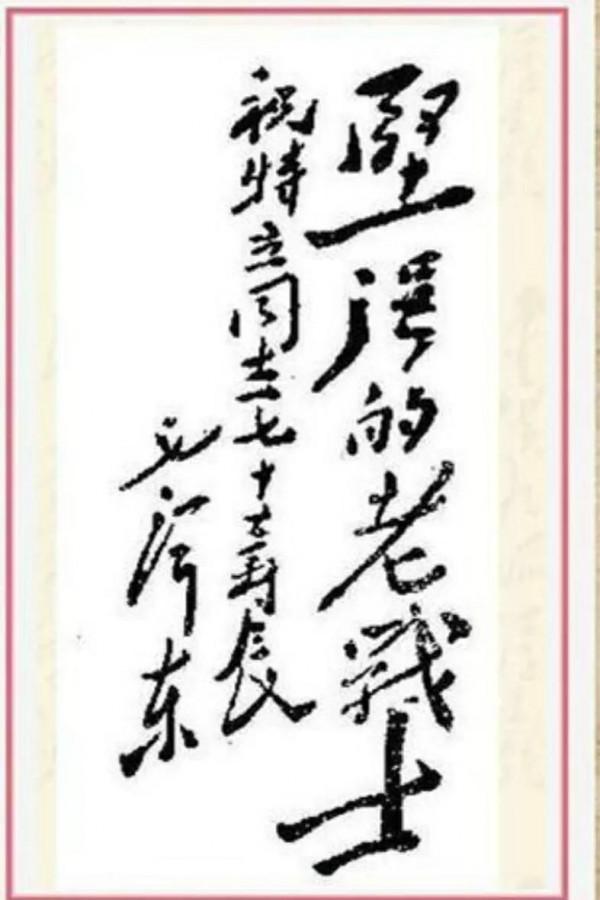 堅强的老戰士
祝特立同志七十大寿辰
毛泽东